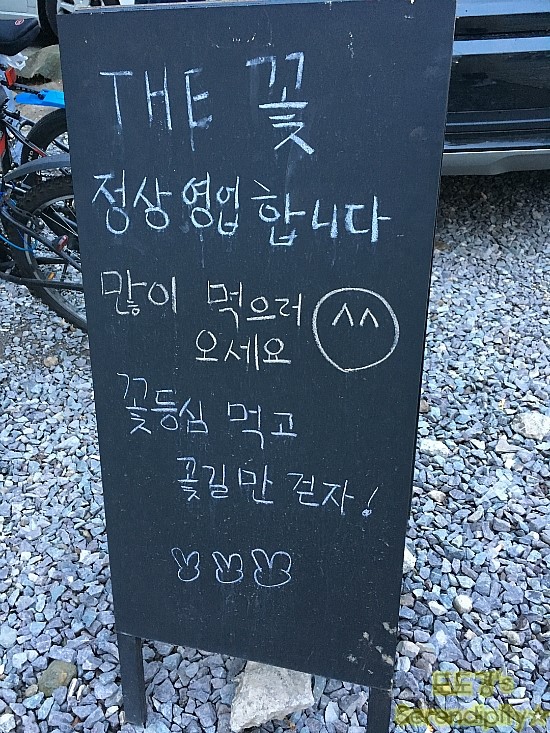 THE 꽃
정상영업합니다
많이 먹으러
오세요
꽃등심 먹고
꽃길만 걷자!
Serendipity